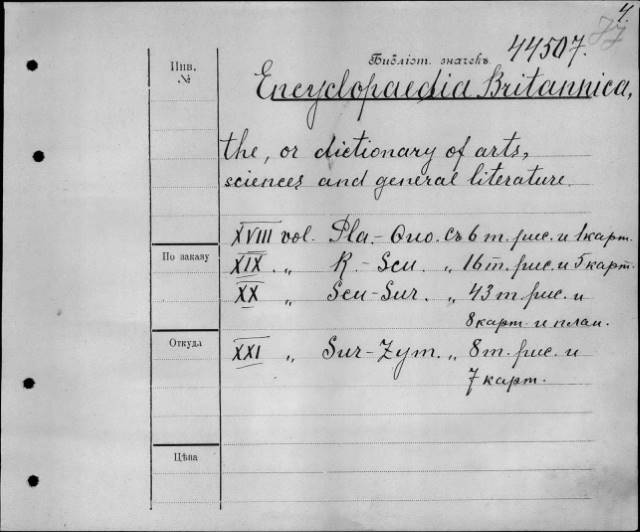 4.
Инв.
№
Библіот. значекъ 44507.
Encyclopaedia Britannica,
the, or dictionary of arts,
sciences and general literature.
XVIII vol. Pla.- Quo. съ 6 т. рис. и 1 карт.
По заказу
XIX „ R.- Scu. „ 16 т. рис. и 5 карт.
XX „ Scu-Sur. „ 43 т. рис. и
8 карт. и план.
Откуда
XXI „ Sur-Zym. „ 8 т. рис. и
7 карт.
Цѣна